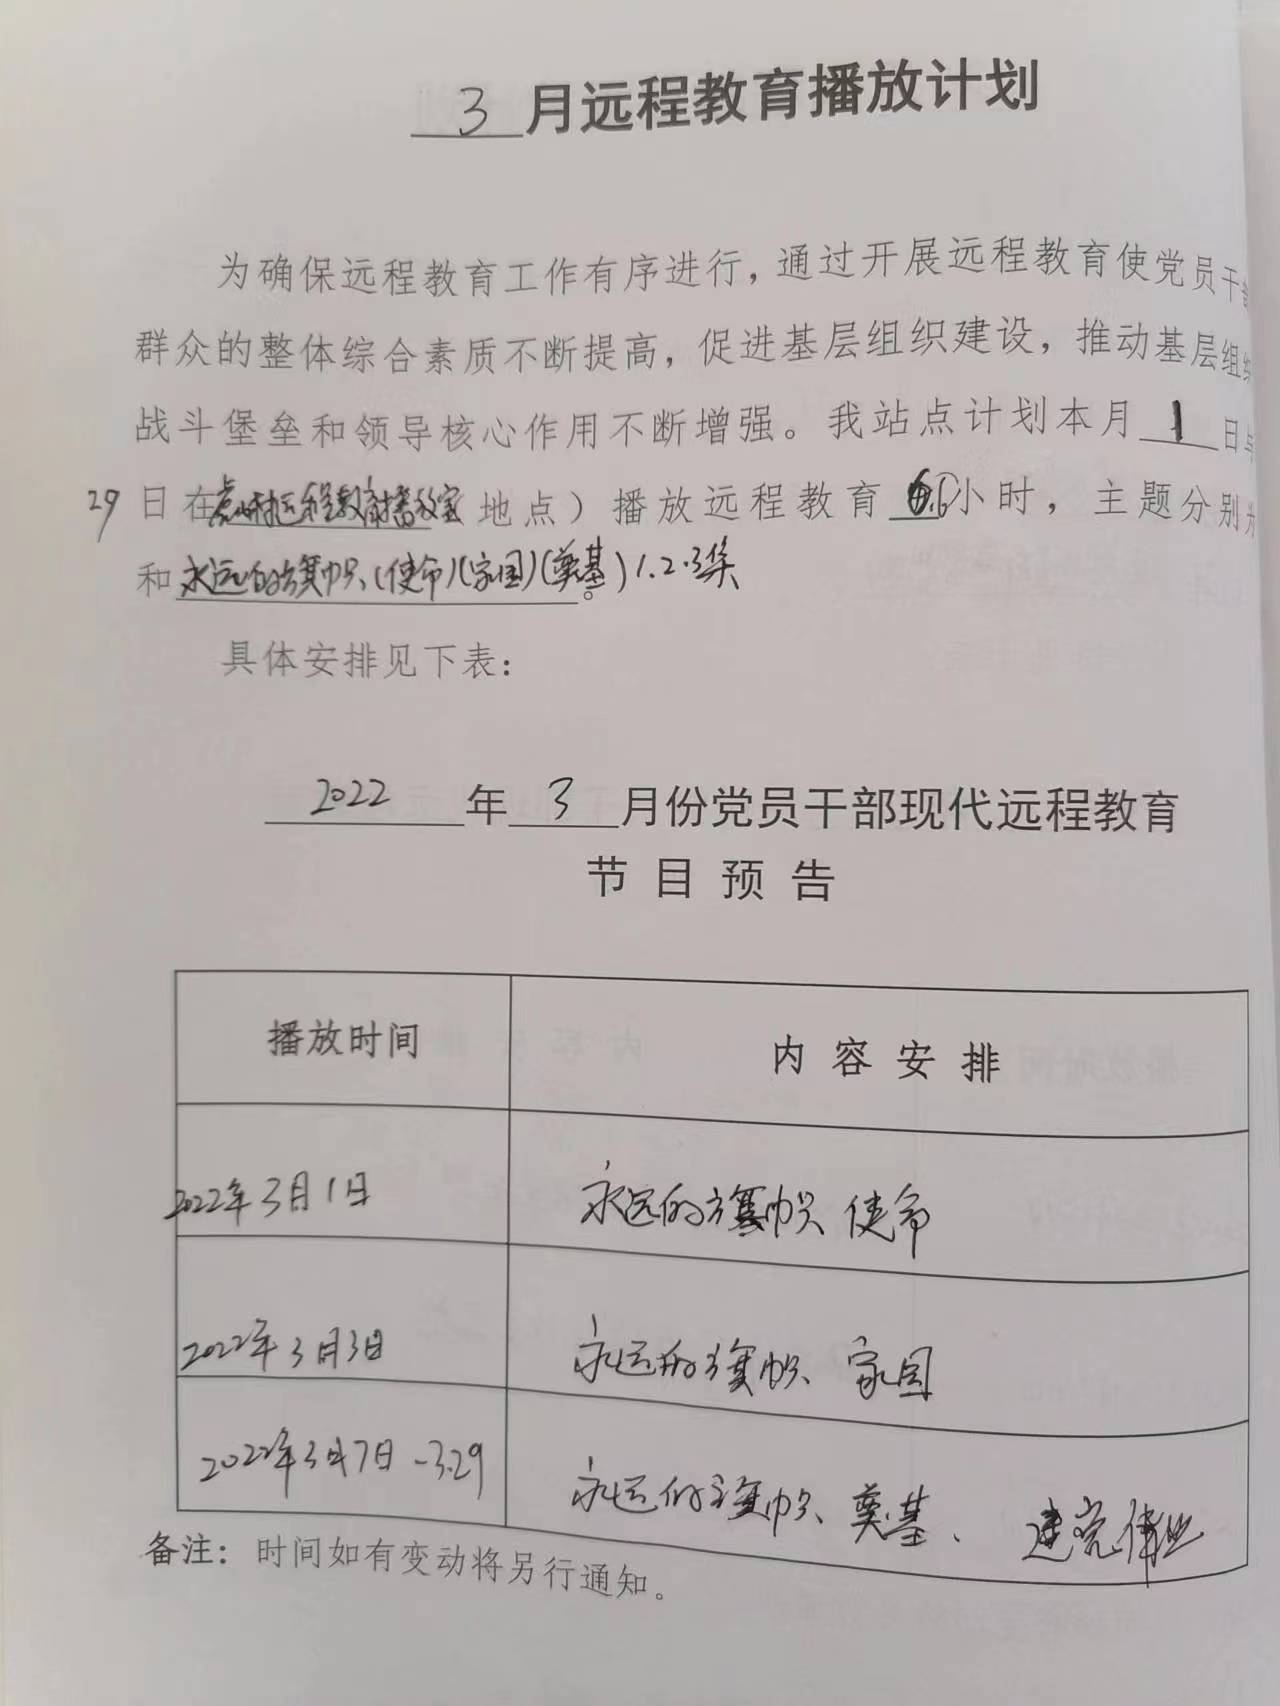 3 月远程教育播放计划
为确保远程教育工作有序进行，通过开展远程教育使党员干部
群众的整体综合素质不断提高，促进基层组织建设，推动基层组织
战斗堡垒和领导核心作用不断增强。我站点计划本月 1 日与
29 日在 远程教育播放室（地点）播放远程教育 小时，主题分别为
和永远的旗帜（使命）（家国）（奠基）1.2.3集。
具体安排见下表：
2022 年 3 月份党员干部现代远程教育
节目预告
播放时间 内容安排
2022年3月1日 永远的旗帜 使命
2022年3月3日 永远的旗帜、家国
2022年3月7日-3.29 永远的旗帜、奠基、建党伟业
备注：时间如有变动将另行通知。